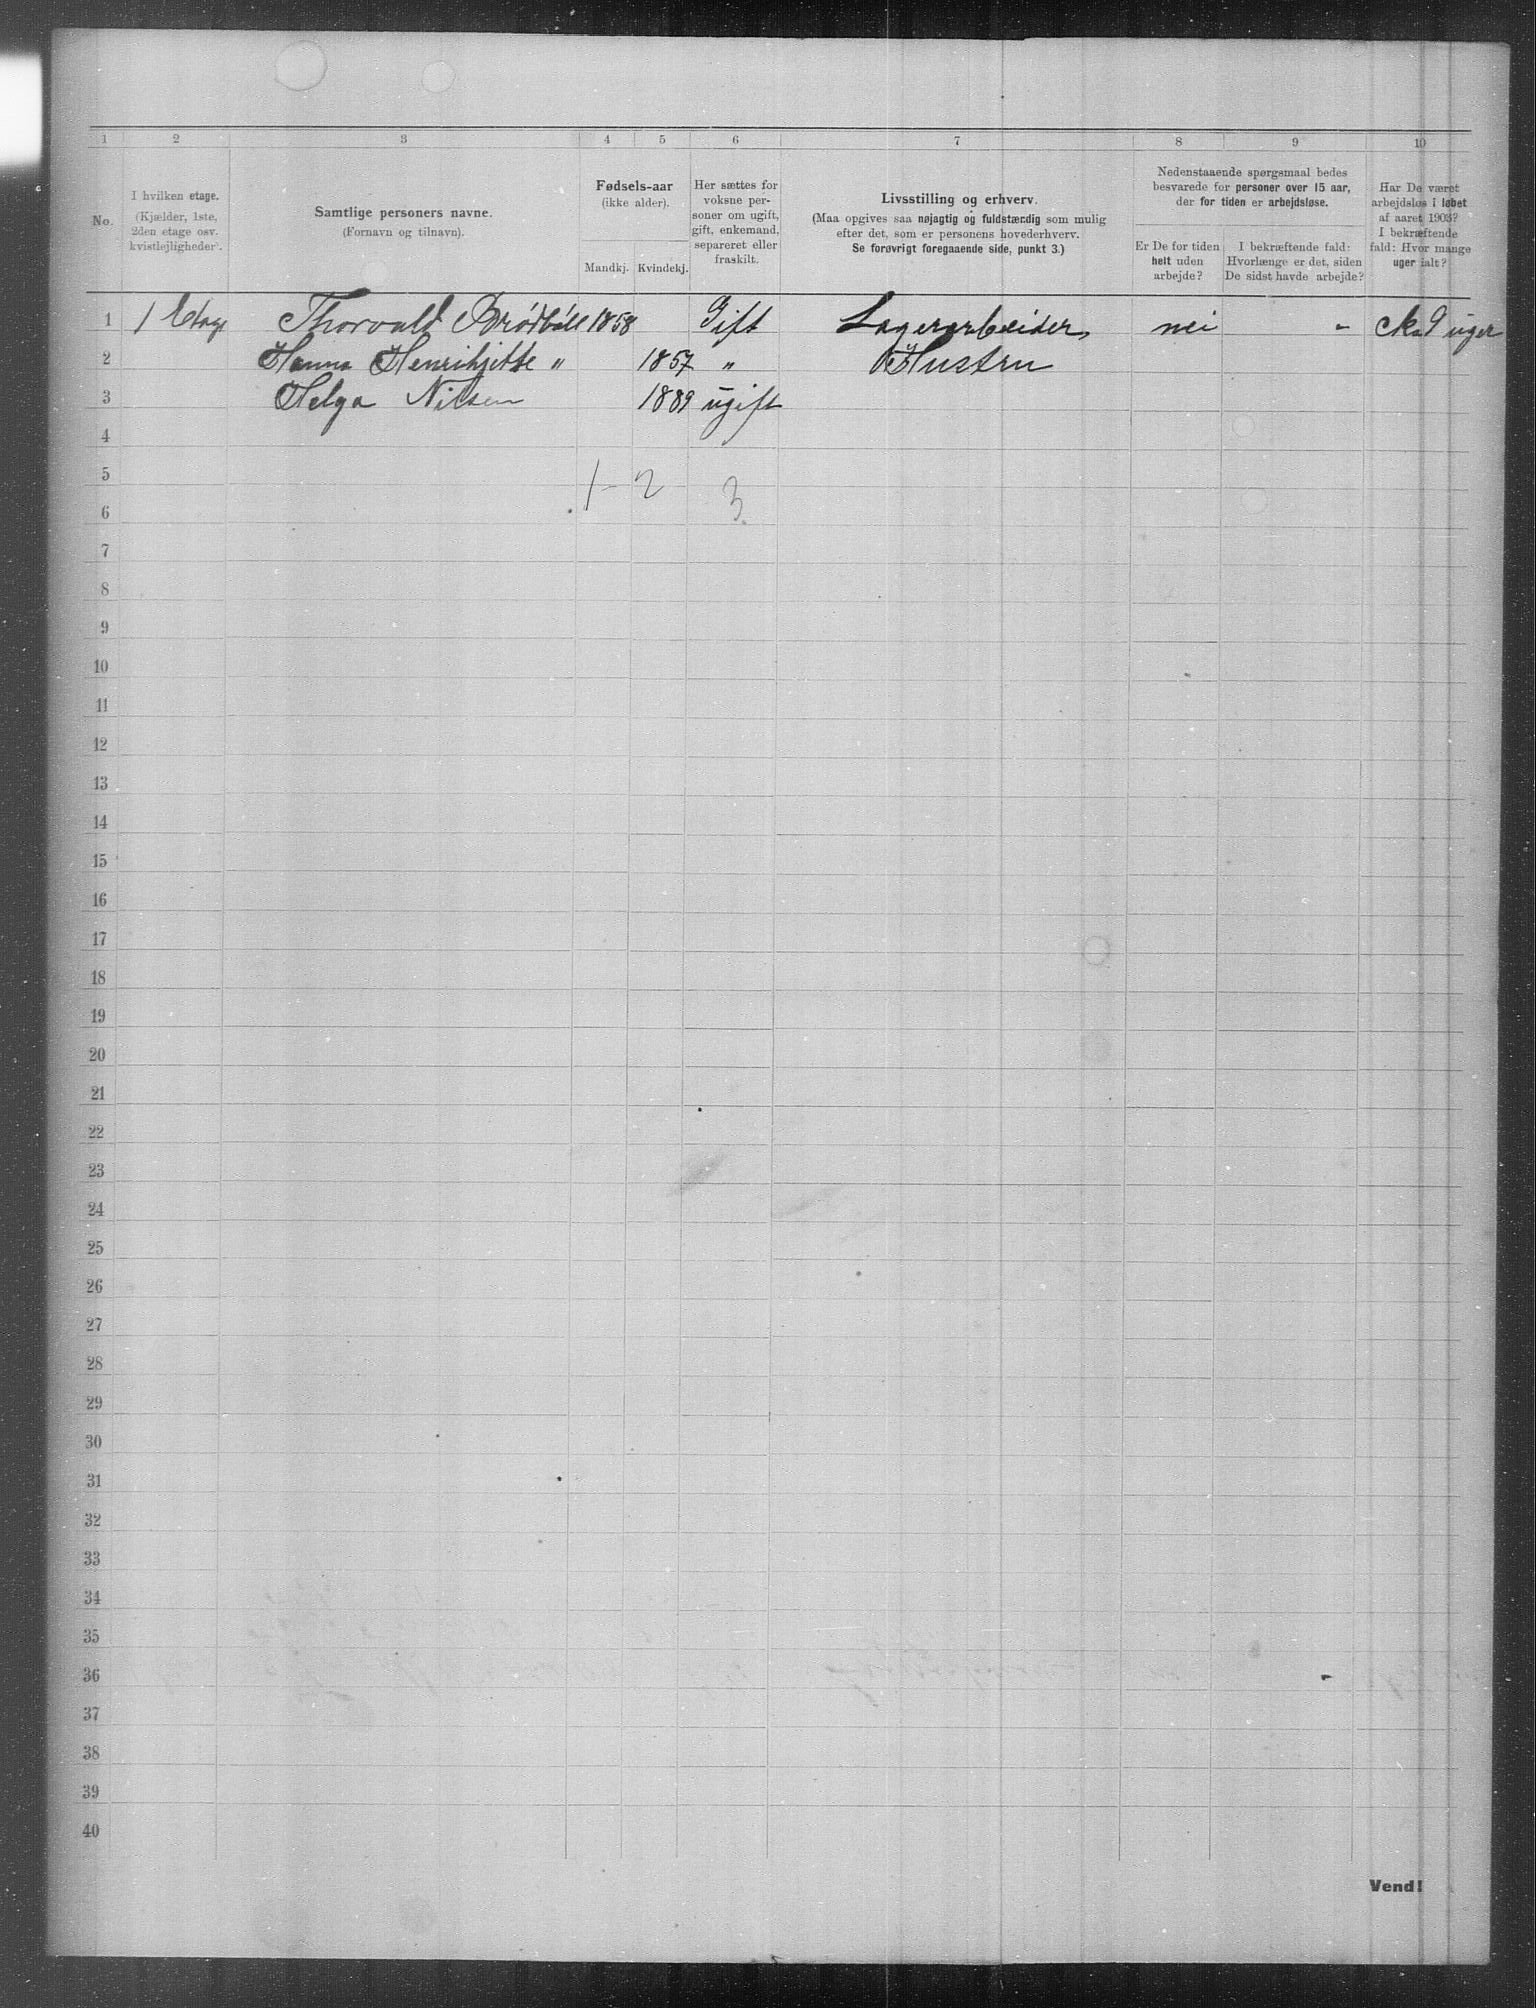 1 2 3 4 5 6 7 8 9 10
No.
I hvilken etage.
(Kjælder, 1ste,
2den etage osv.
kvistlejligheder).
Samtlige personers navne.
(Fornavn og tilnavn).
Fødsels-aar
(ikke alder).
Mandkj. Kvindekj.
Her sættes for
voksne per-
soner om ugift,
gift, enkemand,
separeret eller
fraskilt.
Livsstilling og erhverv.
(Maa opgives saa nøjagtig og fuldstændig som mulig
efter det, som er personens hovederhverv.
Se forøvrigt foregaaende side, punkt 3.)
Nedenstaaende spørgsmaal bedes
besvarede for personer over 15 aar,
der for tiden er arbejdsløse.
Er De for tiden
helt uden
arbejde?
I bekræftende fald:
Hvorlænge er det, siden
De sidst havde arbejde?
Har De været
arbejdsløs i løbet
af aaret 1903?
I bekræftende
fald: Hvor mange
uger ialt?
1 1 Etage Thorvald Brödböll 1858 Gift Lagerarbeider nei - uger
2 Hanna Henrikjette " 1857 " Hustru
3 Helga Nilsen 1889 ugift
4
5 1 - 2 3
6
7
8
9
10
11
12
13
14
15
16
17
18
19
20
21
22
23
24
25
26
27
28
29
30
31
32
33
34
35
36
37
38
39
40
Vend!